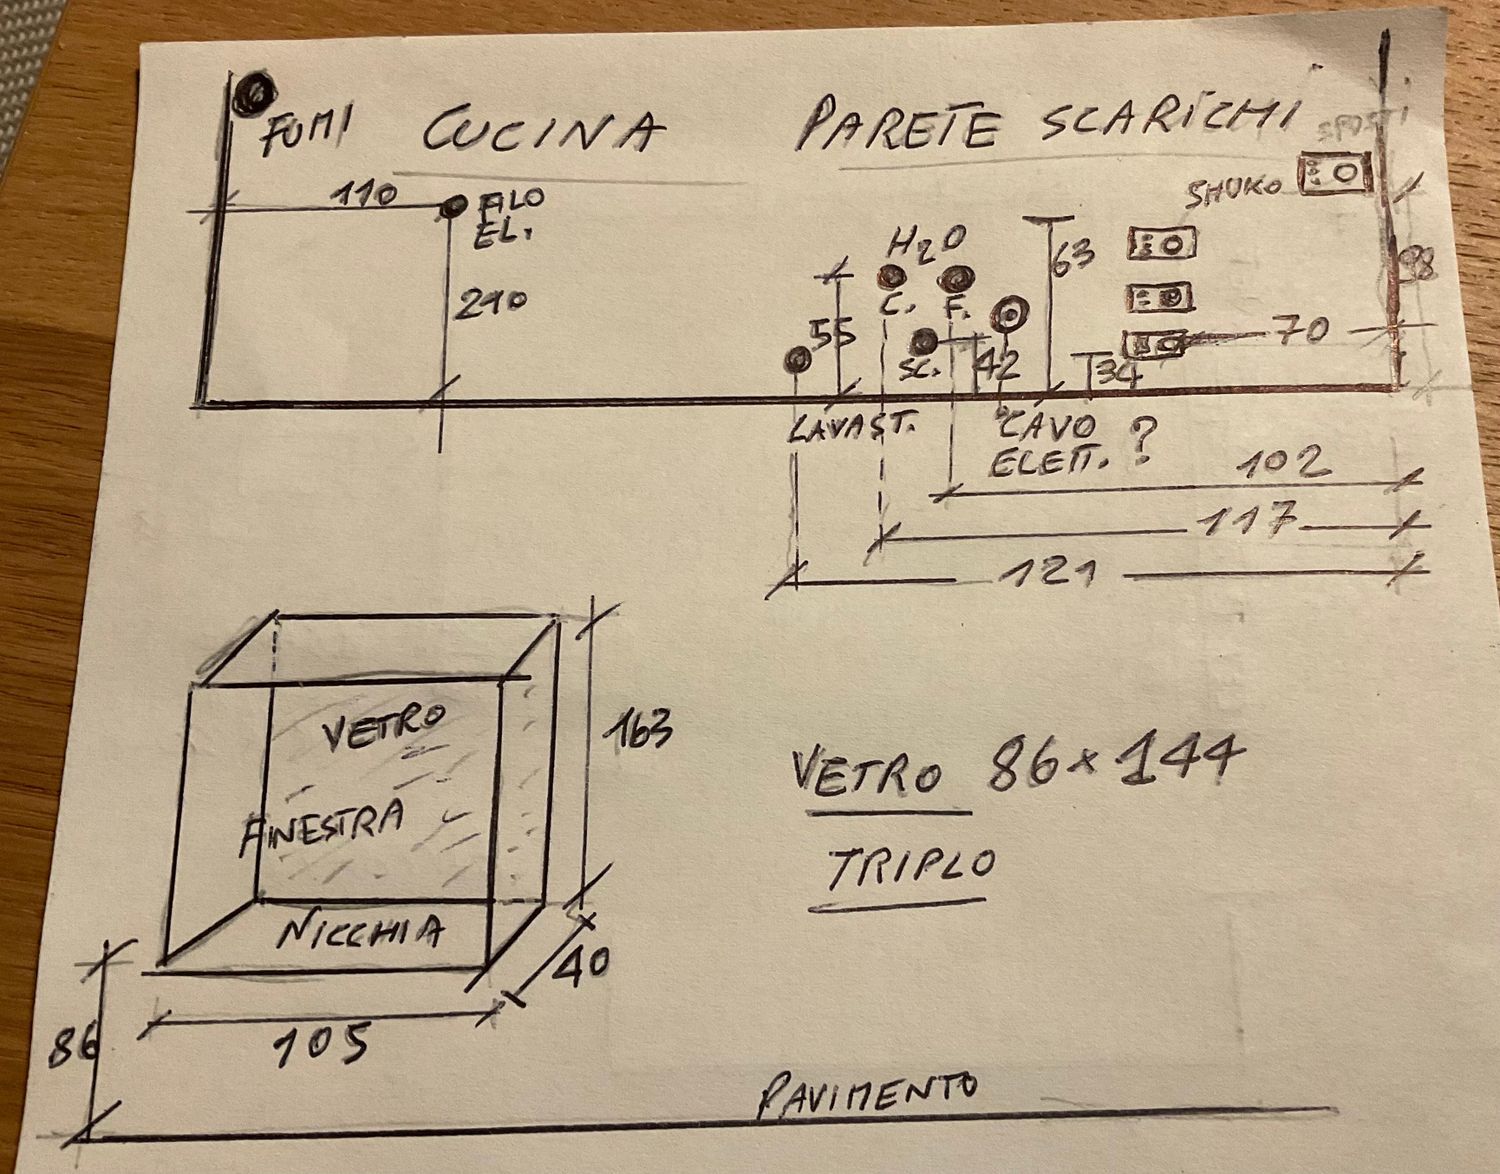 FUMI
CUCINA
PARETE SCARICHI
SPOSTI
SHUKO
110
FILO
EL.
210
H2O
C. F.
63
98
55
SC.
42
34
70
LAVAST.
CAVO
ELETT. ?
102
117
121
VETRO
FINESTRA
NICCHIA
163
40
105
86
VETRO 86×144
TRIPLO
PAVIMENTO